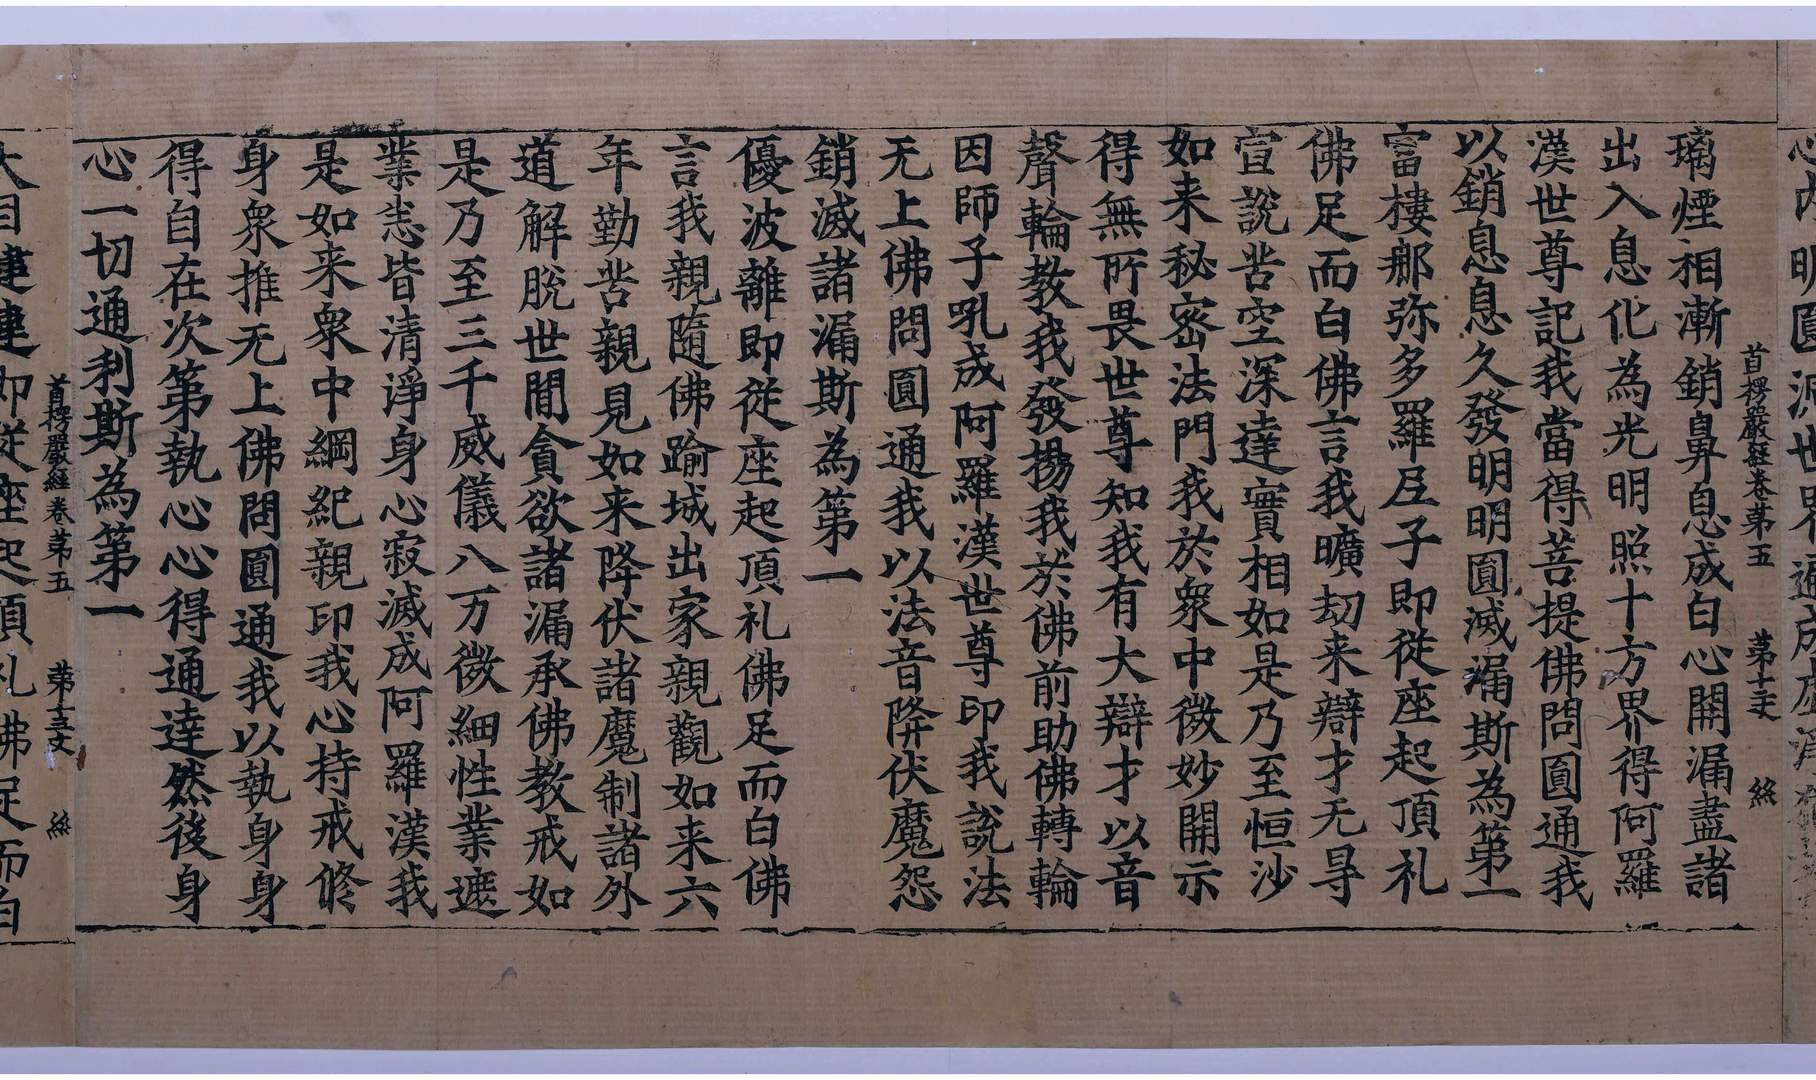 心內明圓洞世界遍成虛淨
首楞嚴經卷第五 第十二丈 絲
璃煙相漸銷鼻息成白心開漏盡諸
出入息化為光明照十方界得阿羅
漢世尊記我當得菩提佛問圓通我
以銷息息久發明明圓滅漏斯為第一
富樓那弥多羅𡰱子即從座起頂礼
佛足而白佛言我曠劫来辯才无㝵
宣說苦空深達實相如是乃至恒沙
如来秘密法門我於衆中微妙開示
得無所畏世尊知我有大辯才以音
聲輪教我發揚我於佛前助佛轉輪
因師子吼成阿羅漢世尊印我說法
无上佛問圓通我以法音降伏魔怨
銷滅諸漏斯為第一
優波離即從座起頂礼佛足而白佛
言我親隨佛踰城出家親觀如来六
年勤苦親見如来降伏諸魔制諸外
道解脫世間貪欲諸漏承佛教戒如
是乃至三千威儀八万微細性業遮
業悉皆清淨身心寂滅成阿羅漢我
是如来衆中綱紀親印我心持戒修
身衆推无上佛問圓通我以執身身
得自在次第執心心得通達然後身
心一切通利斯為第一
首楞嚴經卷第五 第十三丈 絲
大目揵連即從座起頂礼佛足而白